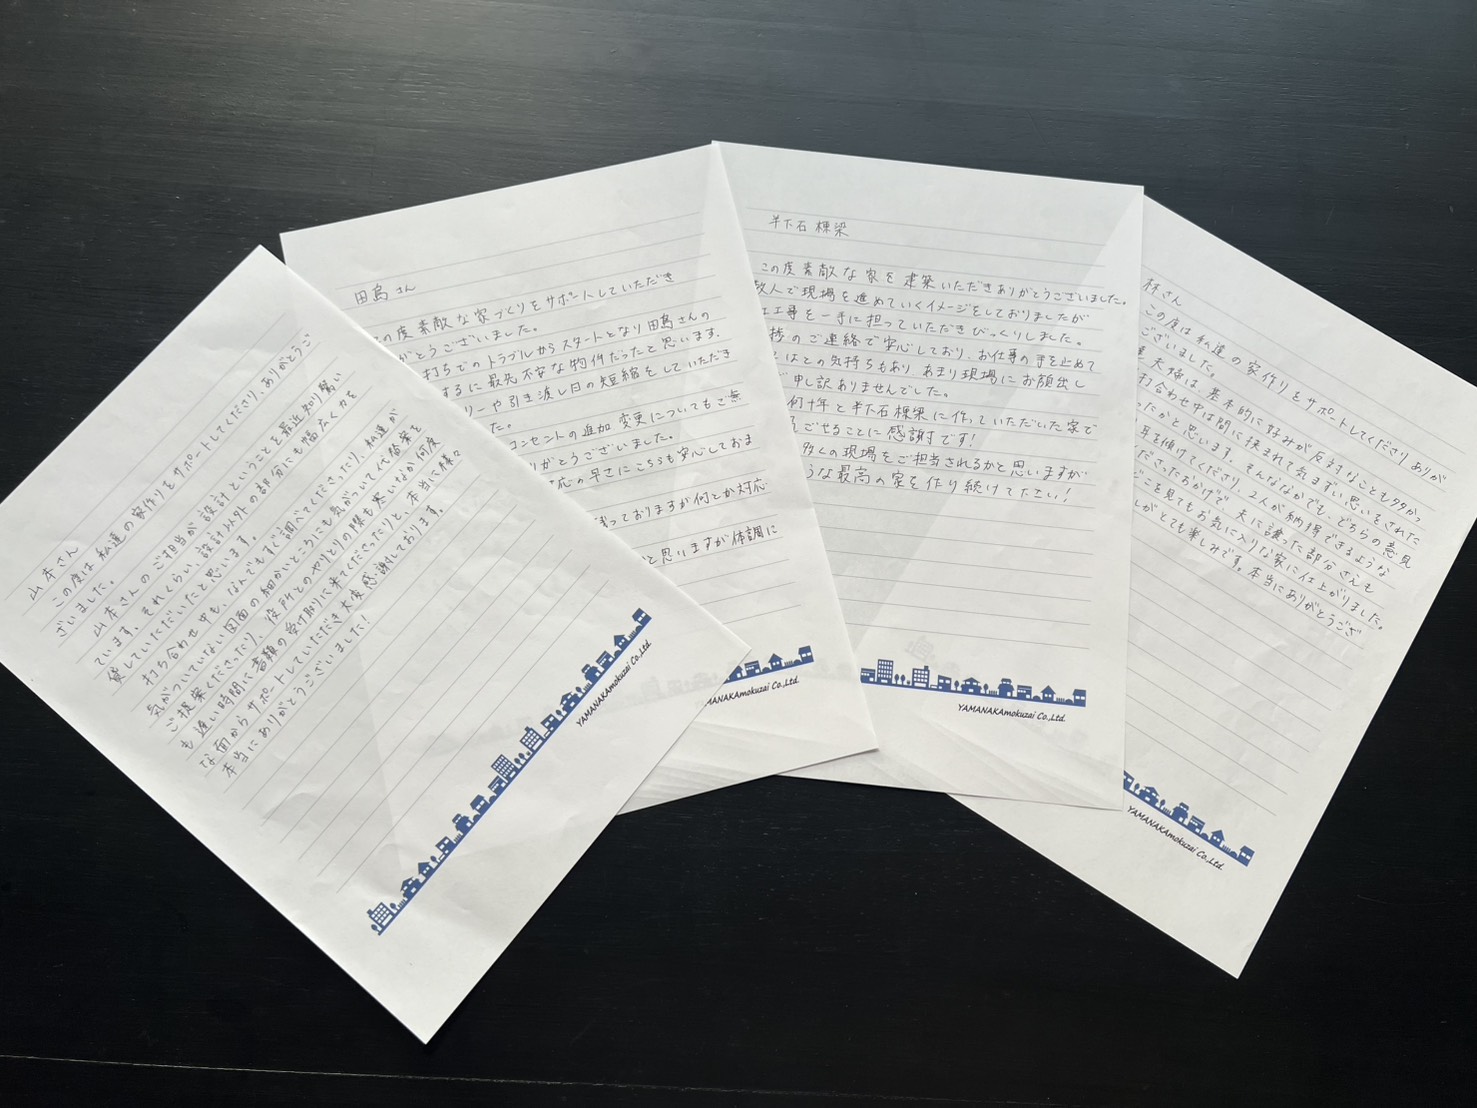 山本さん
この度は私達の家作りをサポートしてくださり、ありがとうご
ざいました。
山本さんのご担当が設計ということを最近知り驚い
ています。それくらい、設計以外の部分にも幅広く力を
貸していただいたと思います。
打ち合わせ中も、なんでもすぐ調べてくださったり、私達が
気がついていない図面の細かいところにも気がついて代替案を
ご提案くださったり、役所とのやりとりの隙も寒いなか何度
も遅い時間に書類の受け取りに来てくださったりと、本当に様々
な面からサポートしていただき大変感謝しております。
本当にありがとうございました!
YAMANAKAmokuzai Co.,Ltd.
田島さん
の度素敵な家づくりをサポートしていただき
がとうございました。
打ちでのトラブルからスタートとなり田島さんの
するに最先不安な物件だったと思います。
リーや引き渡し日の短縮をしていただき
た。
コンセントの追加変更についてもご無
りがとうございました。
応の早さにこちらも安心しておま
っておりますが何とか対応
と思いますが体調に
YAMANAKAmokuzai Co.,Ltd.
半下石棟梁
この度素敵な家を建築いただきありがとうございました。
数人で現場を進めていくイメージをしておりましたが
工事を一手に担っていただきびっくりしました。
捗のご連絡で安心しており、お仕事の手を止めて
はとの気持ちもあり、あまり現場にお顔出し
申し訳ありませんでした。
何十年と半下石棟梁に作っていただいた家で
ごせることに感謝です!
多くの現場をご担当されるかと思いますが
うな最高の家を作り続けて下さい!
YAMANAKAmokuzai Co.,Ltd.
林さん
この度は私達の家作りをサポートしてくださりありが
ございました。
夫婦は、基本的に好みが反対なことも多かっ
打合わせ中は間に挟まれて気まずい思いをされた
ったかと思います。そんななかでも、どちらの意見
耳を傾けてくださり、2人が納得できるような
ださったおかげで、夫に譲った部分さえも
どこを見てもお気に入りな家に仕上がりました。
しがとても楽しみです。本当にありがとうござ
YAMANAKAmokuzai Co.,Ltd.